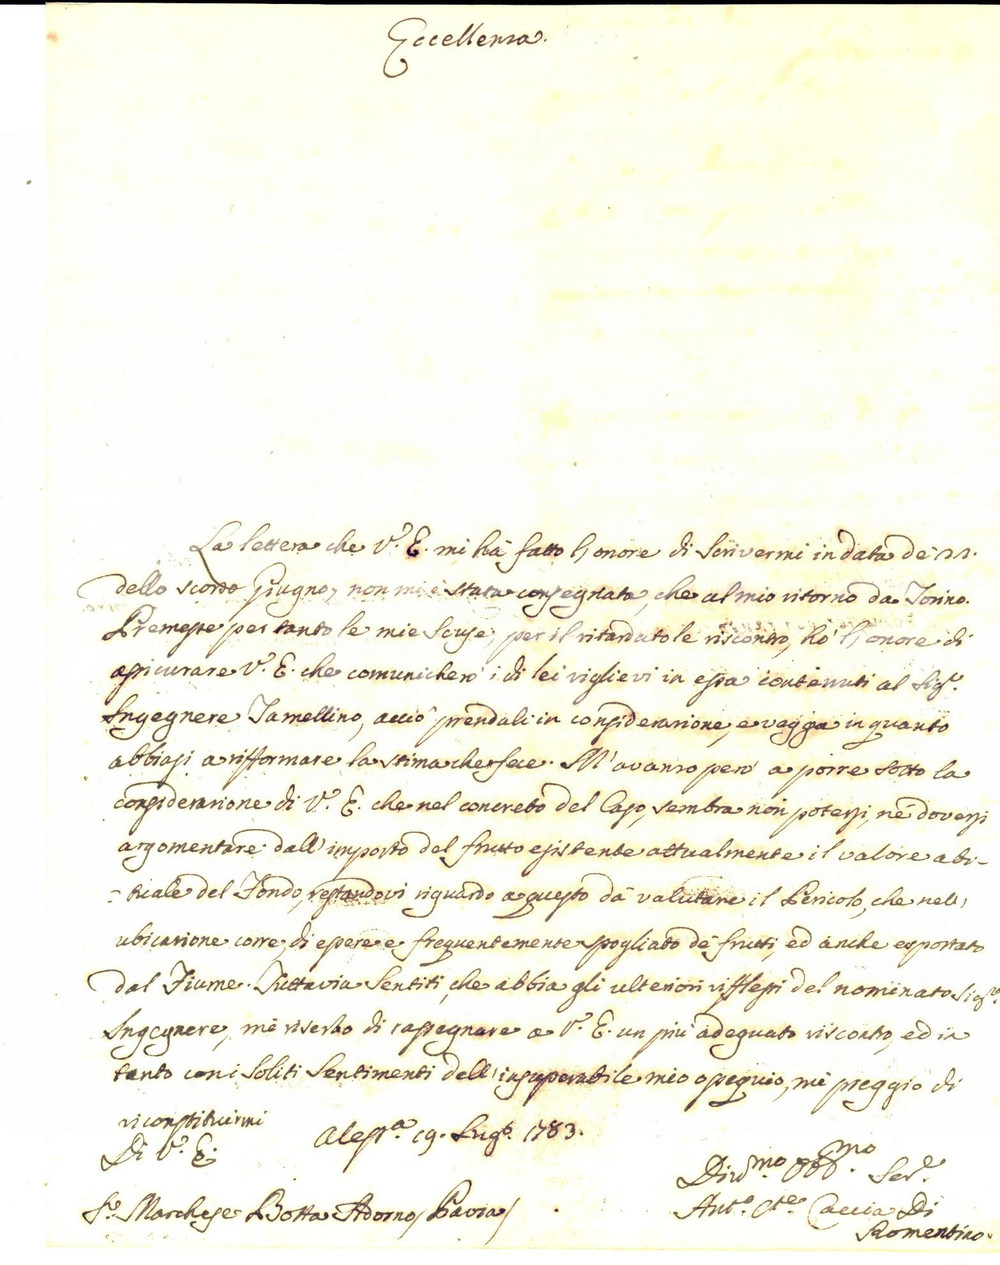 Eccellenza.
La lettera che V.ª E. mi hà fatto l'onore di scrivermi in data de 22.
dello scorso Giugno, non mi è stata consegnata, che al mio ritorno da Torino.
Premesse per tanto le mie scuse, per il ritardatole riscontro, hò l'onore di
assicurare V.ª E. che comunicherò i di lei riglievi in essa contenuti al Sig.r
Ingegnere Jamellino, acciò prendali in considerazione, e vegga in quanto
abbiasi a rifformare la stima che fece. M'avanzo però a porre sotto la
considerazione di V.ª E. che nel concreto del Caso, sembra non potersi, nè doversi
argomentare dall'importo del frutto esistente attualmente il valore abi-
-tuale del Fondo, restandovi riguardo a questo da valutare il Pericolo, che nell'
ubicazione corre di essere e frequentemente spogliato de frutti, ed anche esportato
dal Fiume. Tuttavia sentiti, che abbia gli ulteriori rifflessi del nominato Sig.r
Ingegnere, mi riserbo di rassegnare a V.ª E. un più adeguato riscontro, ed in
tanto con i soliti sentimenti dell'insuperabile mio ossequio, mi preggio di
riconstituirmi
Di V.ª E. Aless.ª 19. Lug.º 1783.
Div.mo Obb.mo Ser.e
S.r Marchese Botta Adorno / Pavia /
Ant.º C.te Caccia Di
Romentino.